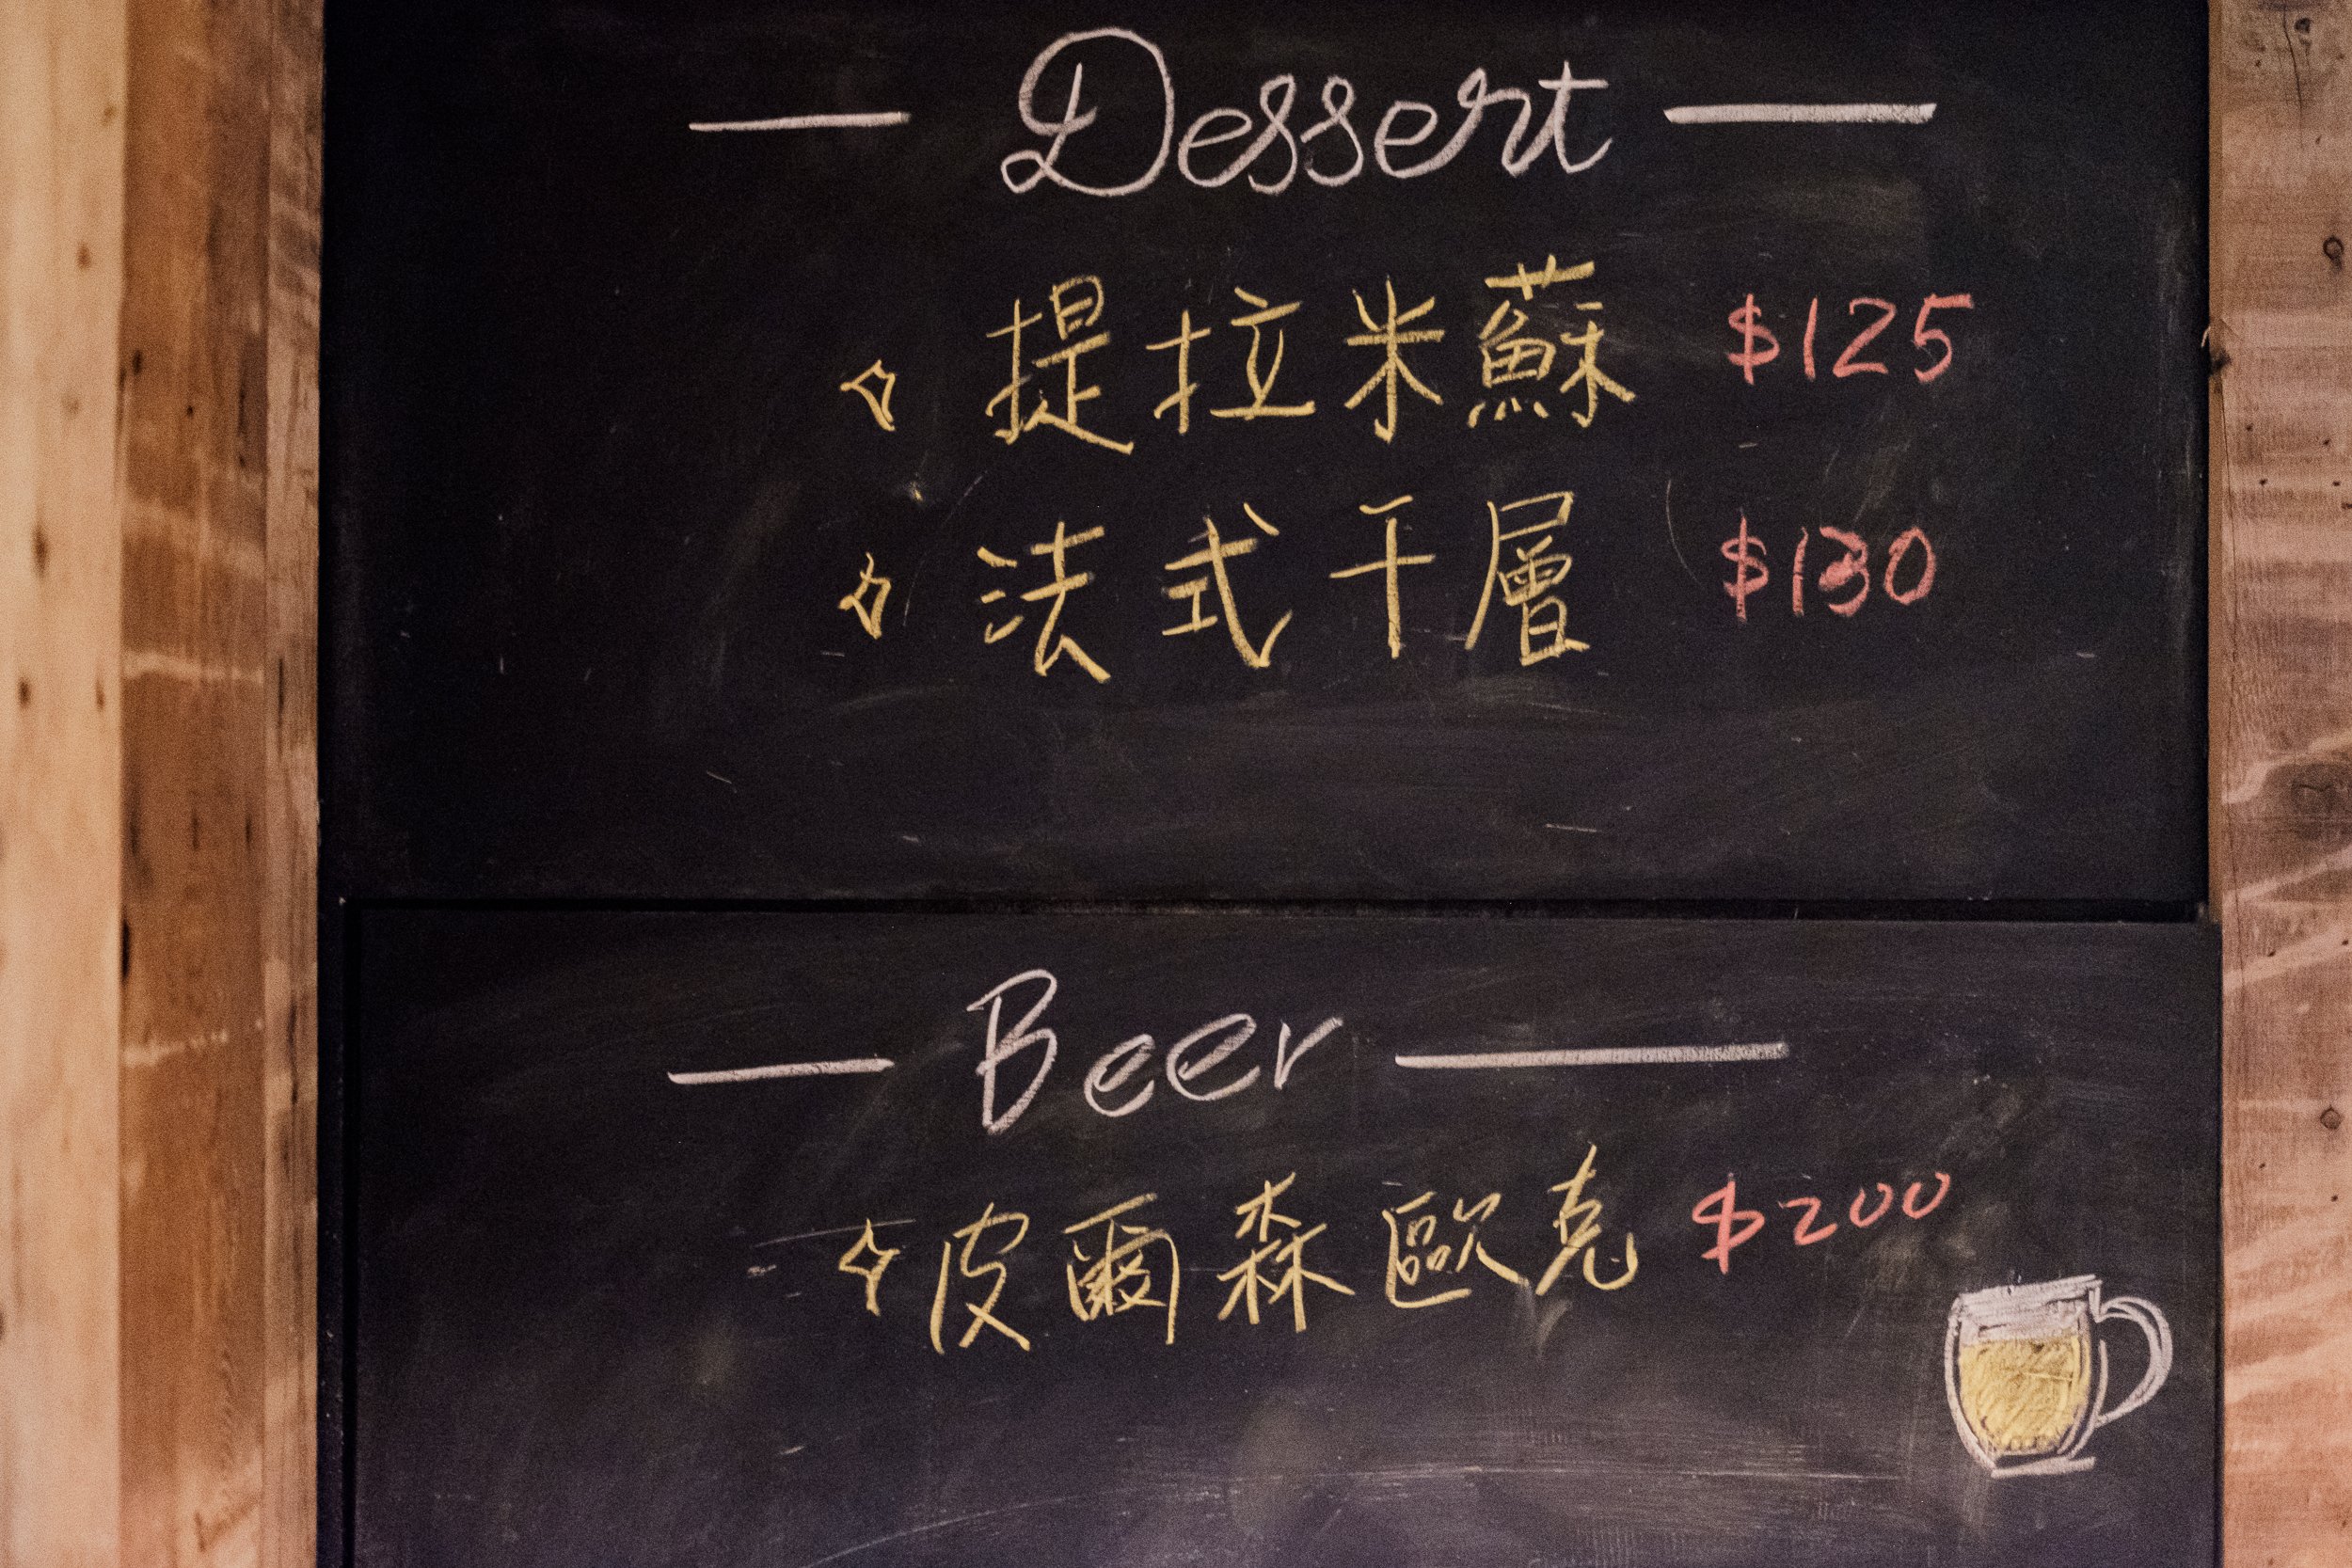 Dessert
提拉米蘇 $125
法式千層 $130
Beer
皮爾森歐克 $200